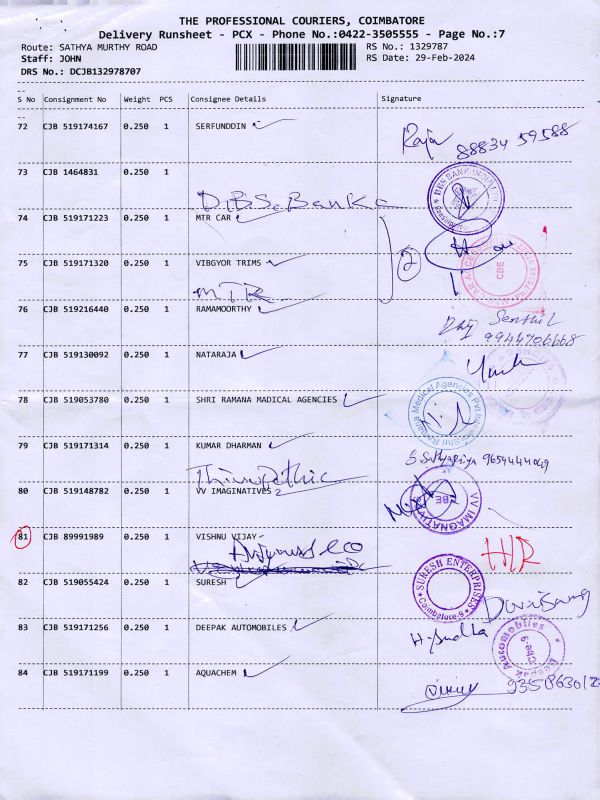 THE PROFESSIONAL COURIERS, COIMBATORE
Delivery Runsheet - PCX - Phone No.:0422-3505555 - Page No.:7
Route: SATHYA MURTHY ROAD
RS No.: 1329787
Staff: JOHN
RS Date: 29-Feb-2024
DRS No.: DCJB132978707
S No Consignment No Weight PCS Consignee Details Signature
72 CJB 519174167 0.250 1 SERFUNDDIN Raja 88834 59588
73 CJB 1464831 0.250 1
D.B.S. Bank
74 CJB 519171223 0.250 1 MTR CAR 2
75 CJB 519171320 0.250 1 VIBGYOR TRIMS
CBE
M.T.R
76 CJB 519216440 0.250 1 RAMAMOORTHY Senthil
9944706668
77 CJB 519130092 0.250 1 NATARAJA
78 CJB 519053780 0.250 1 SHRI RAMANA MADICAL AGENCIES
Shri Ramana Medical Agencies Pvt.Ltd.
79 CJB 519171314 0.250 1 KUMAR DHARMAN S. Sathyapriya 9654444049
80 CJB 519148782 0.250 1 VV IMAGINATIVES
VV IMAGINATIVES CBE
81 CJB 89991989 0.250 1 VISHNU VIJAY HR
82 CJB 519055424 0.250 1 SURESH
SURESH ENTERPRISES Coimbatore-9
83 CJB 519171256 0.250 1 DEEPAK AUTOMOBILES H. Sudha
Deepak Automobiles Cbe-9
84 CJB 519171199 0.250 1 AQUACHEM